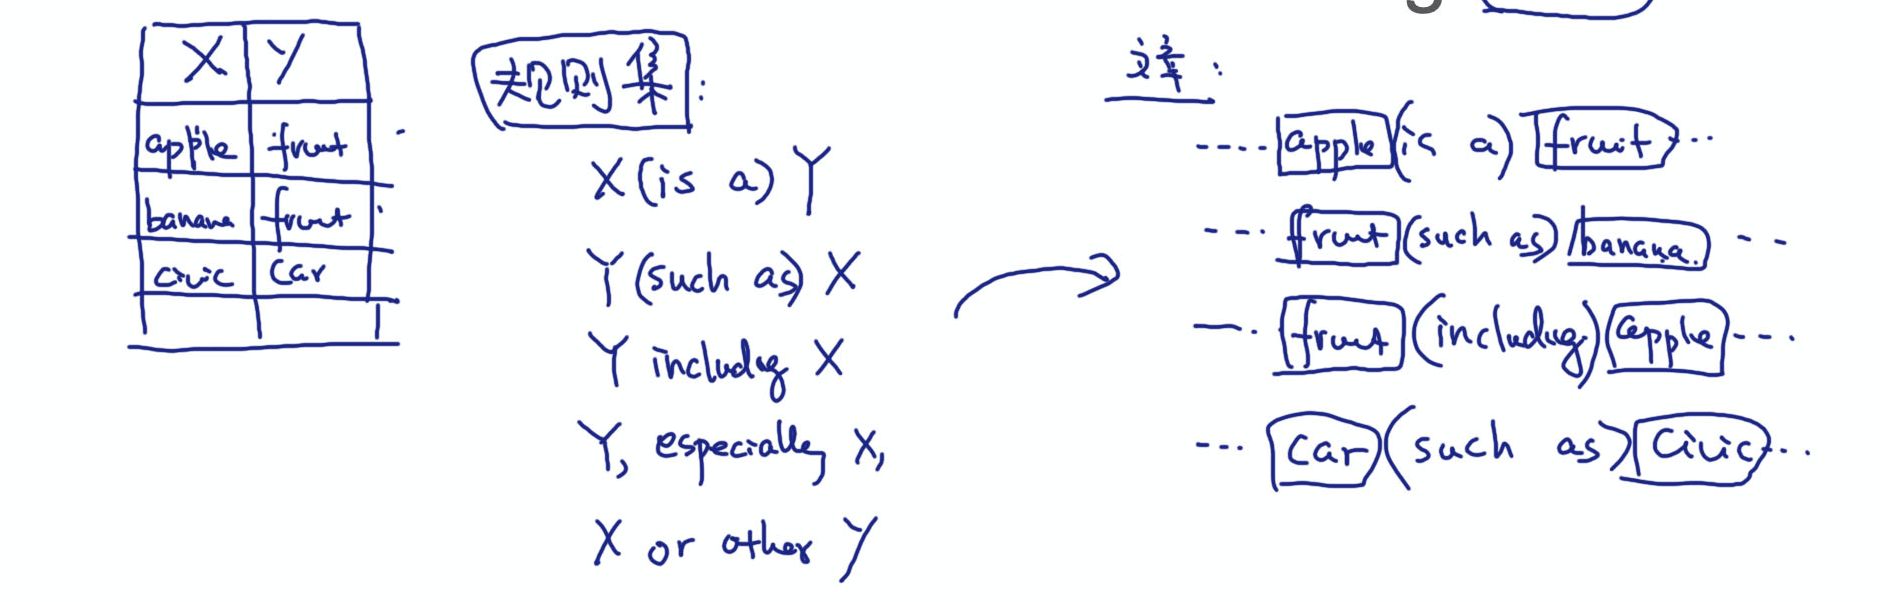 X Y
apple fruit
banana fruit
civic car
规则集:
X (is a) Y
Y (such as) X
Y including X
Y, especially X,
X or other Y
文章:
---- apple (is a) fruit ...
--- fruit (such as) banana. --
—. fruit (including) apple ---.
--- car (such as) civic ...